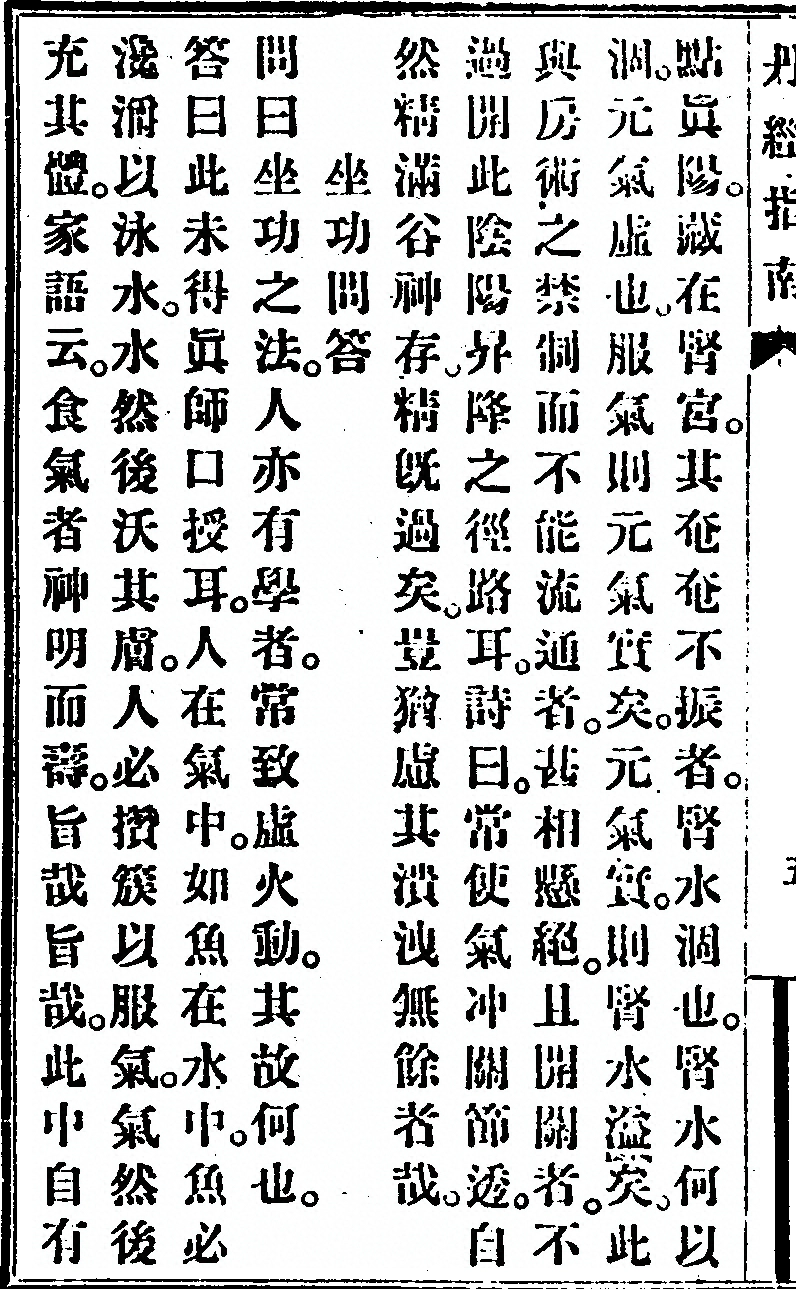 丹經指南
五
點眞陽。藏在腎宮。其奄奄不振者。腎水涸也。腎水何以
涸。元氣虛也。服氣則元氣實矣。元氣實。則腎水溢矣。此
與房術之禁制而不能流通者。甚相懸絕。且開關者。不
過開此陰陽昇降之徑路耳。詩曰。常使氣冲關節透。自
然精滿谷神存。精旣過矣。豈猶慮其潰洩無餘者哉。
坐功問答
問曰坐功之法。人亦有學者。常致虛火動。其故何也。
答曰此未得眞師口授耳。人在氣中。如魚在水中。魚必
以泳水。水然後沃其膚。人必攢簇以服氣。氣然後
充其體。家語云。食氣者神明而壽。旨哉旨哉。此中自有